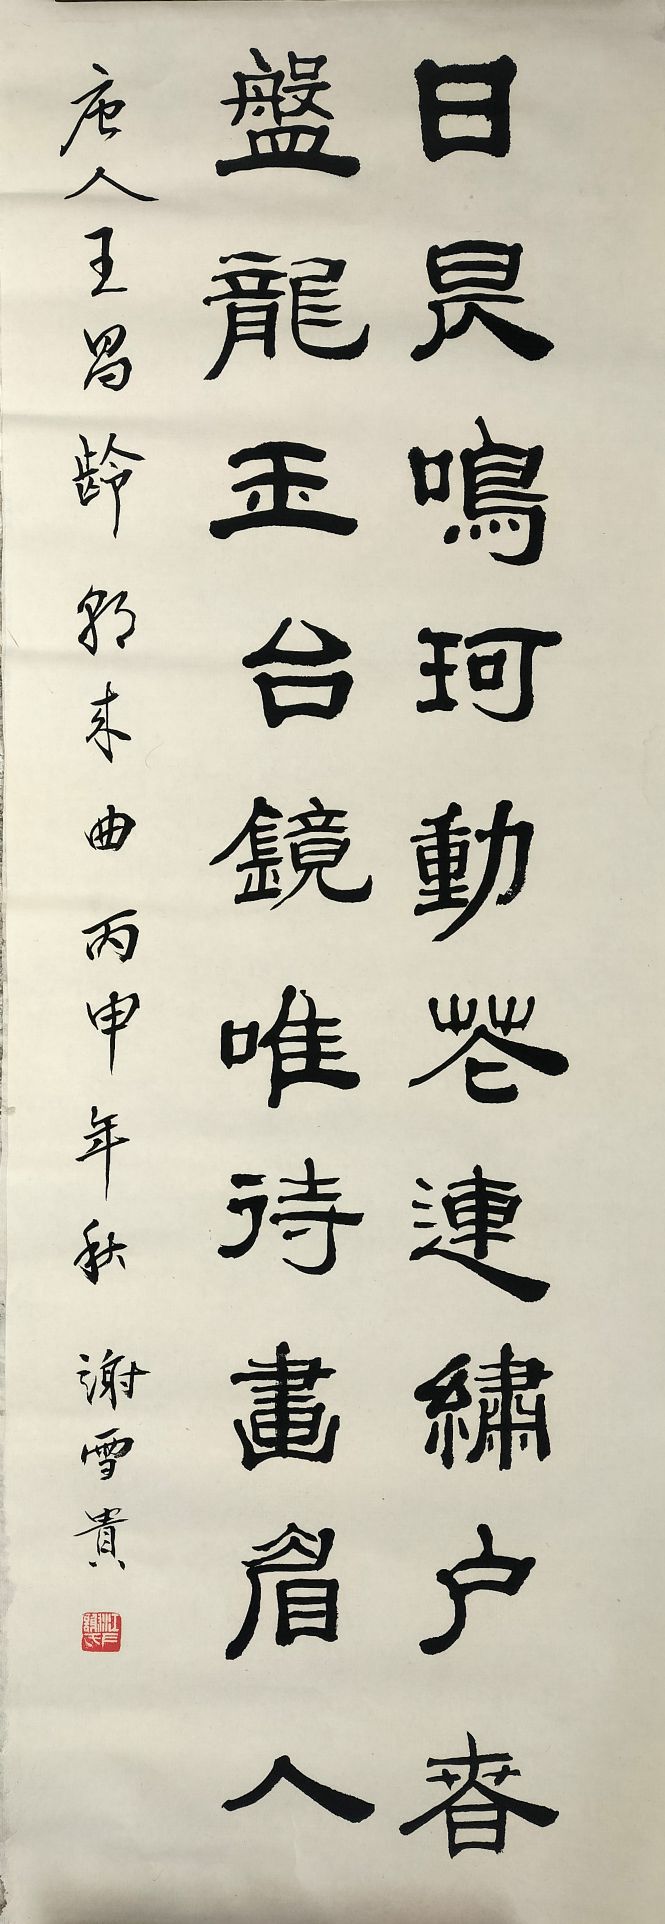 日昃鳴珂動花連繡户春
盤龍玉台鏡唯待畫眉人
唐人王昌龄朝来曲丙申年秋 謝雪貴